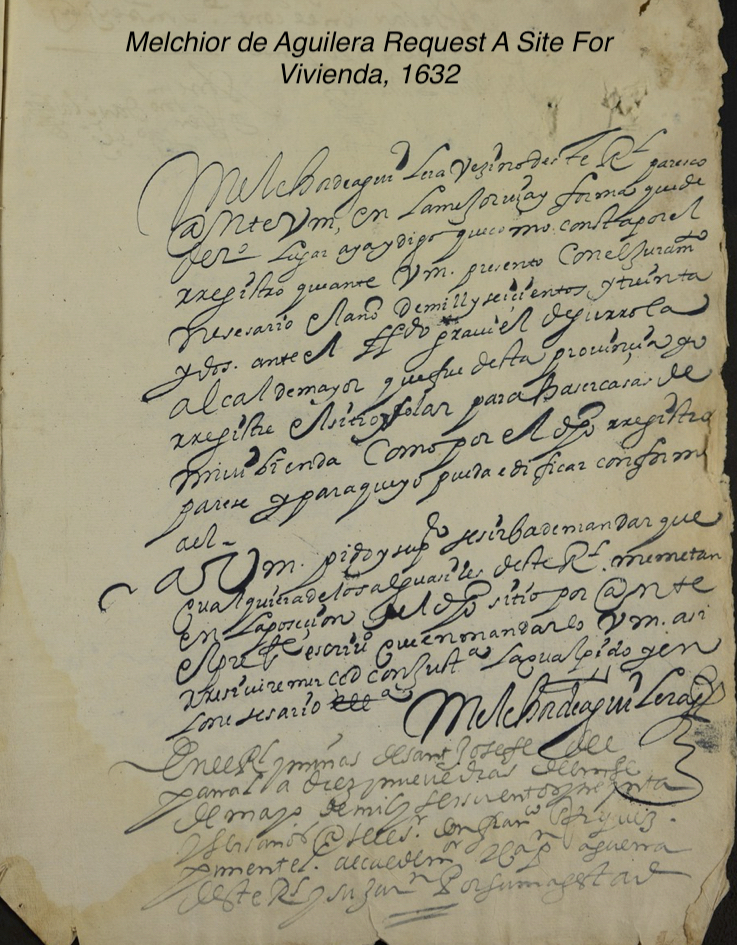 Melchior de Aguilera Request A Site For
Vivienda, 1632
Melchor de aguilera vezino deste Rl paresco
Ante Vm, en la mejor via y forma que de
derº lugar aya y digo que como consta por el
rregistro que ante Vm. presento con el juramº
nesesario el año de mill y seicientos y treinta
y dos. ante el graviel de
alcalde mayor que fue desta provincia yo
rregistre el sitio y solar para haser casas de
mi vibienda como por el dho rregistro
parese y para que yo pueda edificar conforme
a el
a Vm. pido y supco se sirba de mandar que
qualquiera de los alguasiles deste Rl. me metan
en la posecion del dho sitio por Ante
el presete escrivº que en mandarlo Vm. asi
rresevire mrd con justa la qual pido y en
lo nesesario
Melchor de aguilera
En el Rl y minas de sant Josefe del
parral a diez y nueve dias del mes
de mayo de mil y seiscientos y treinta
y años Ante el sr don franco
pimentel. alcalde mor y capn a guerra
deste Rl y su jurn Por su magestad